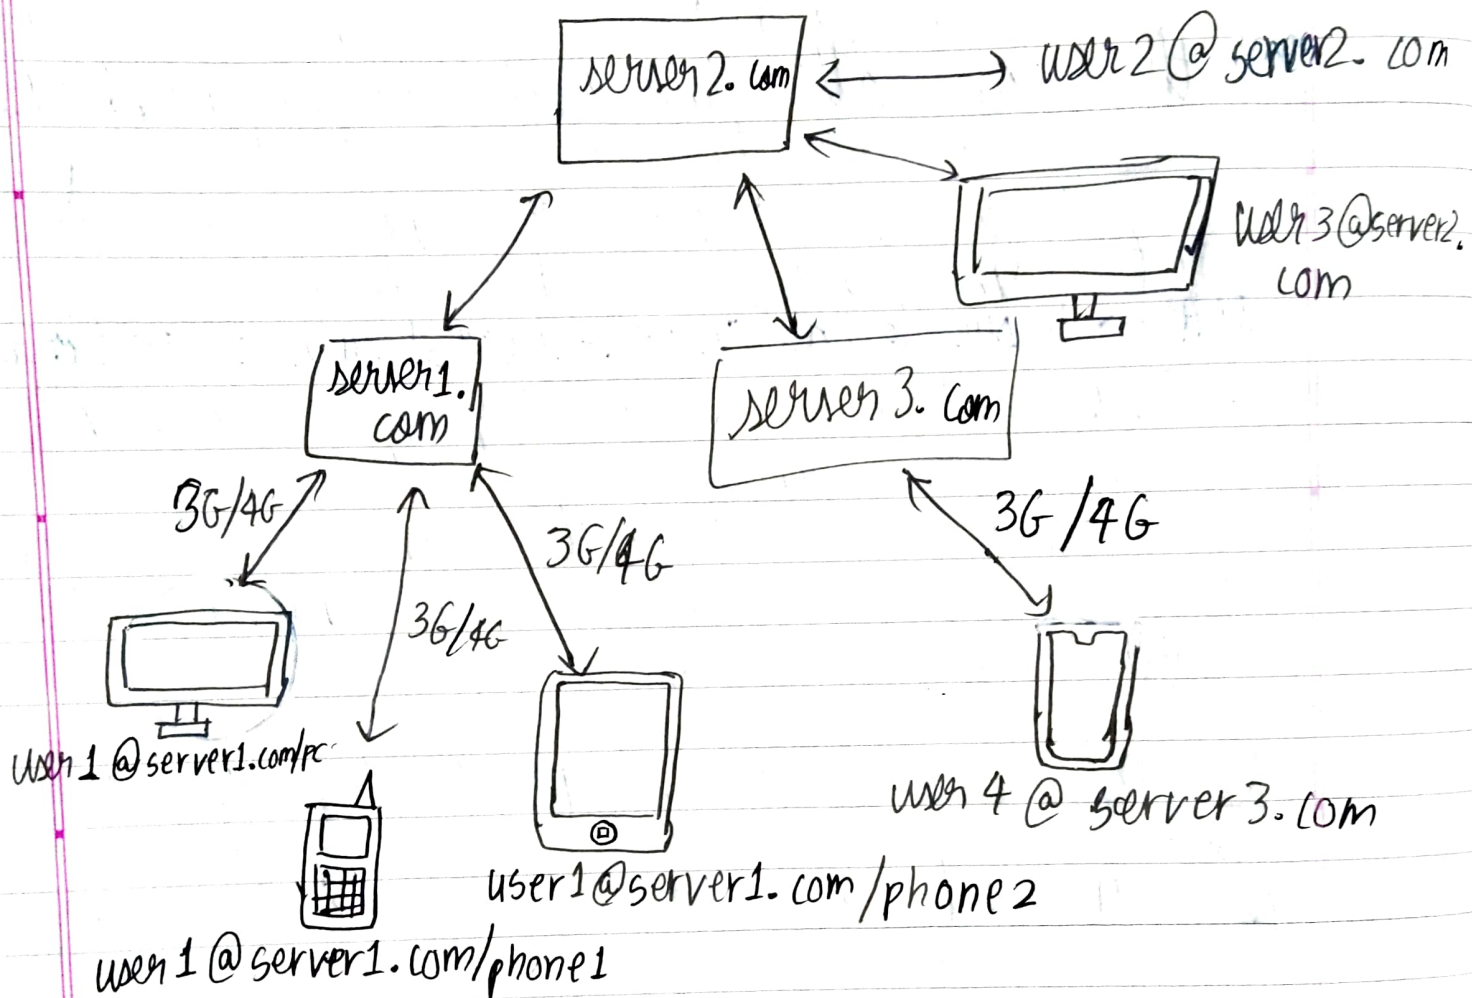 server2.com
user2@server2.com
user3@server2.
com
server1.
com
server3.com
3G/4G
3G/4G
3G/4G
3G/4G
user1@server1.com/pc
user4@server3.com
user1@server1.com/phone2
user1@server1.com/phone1